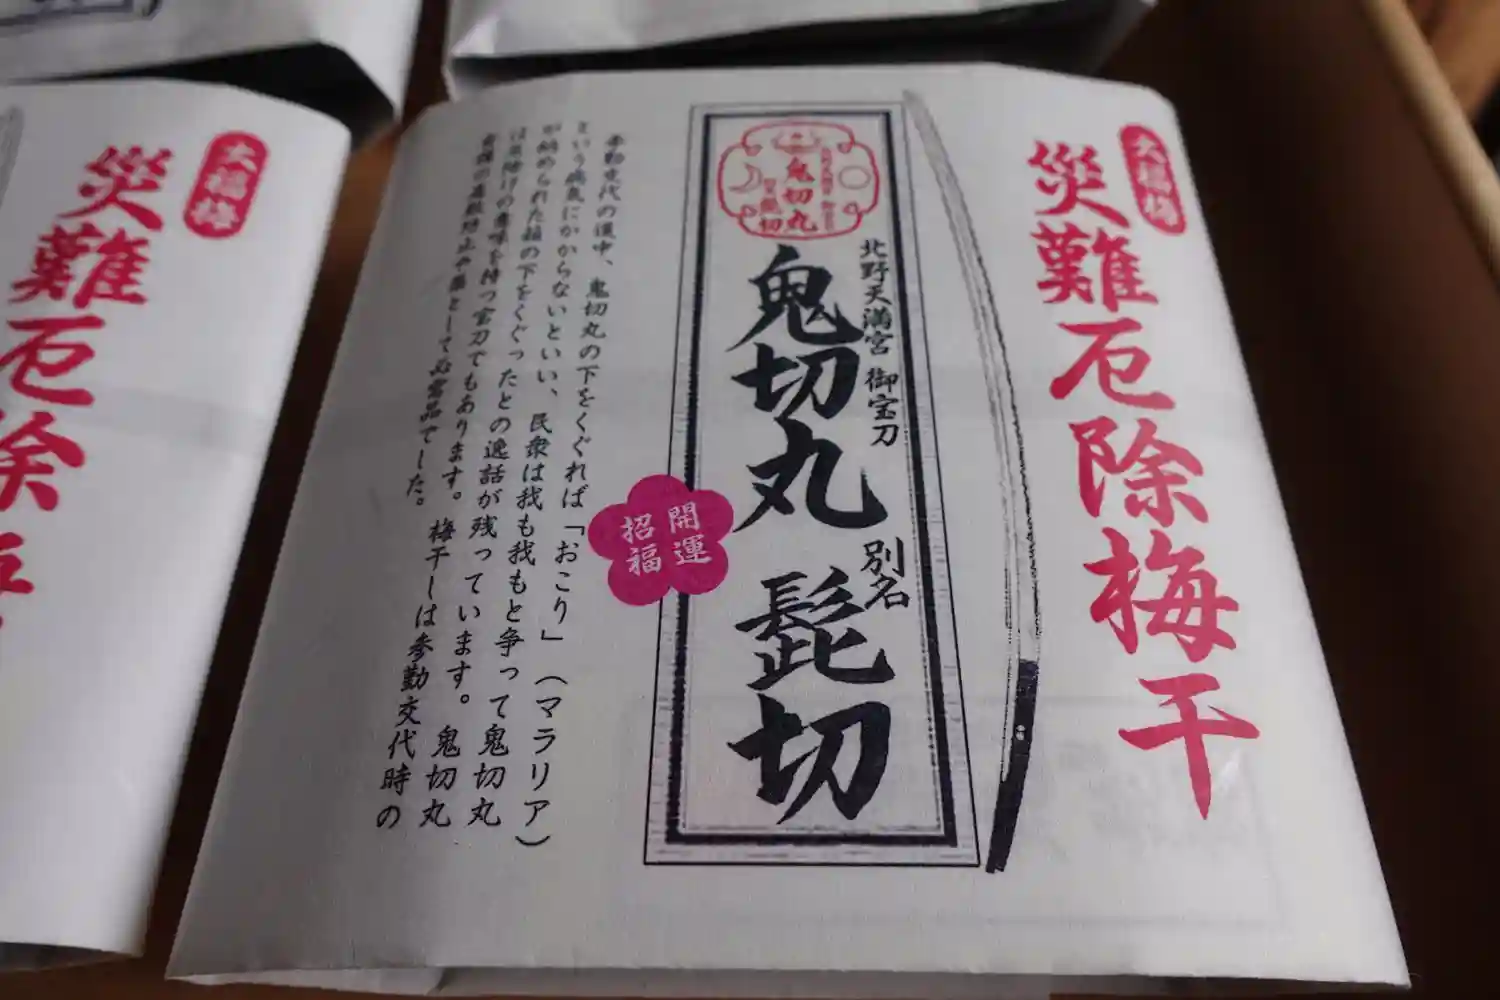 大福梅
災難厄除梅干
北野天満宮 御宝刀
鬼切丸
別名
髭切
鬼切丸
開運
招福
参勤交代の道中、鬼切丸の下をくぐれば「おこり」(マラリア)
という病気にかからないといい、民衆は我も我もと争って鬼切丸
が納められた箱の下をくぐったとの逸話が残っています。鬼切丸
は厄除けの意味を持つ宝刀でもあります。梅干しは参勤交代時の
食中の毒殺防止や薬として必需品でした。
大福梅
災難厄除